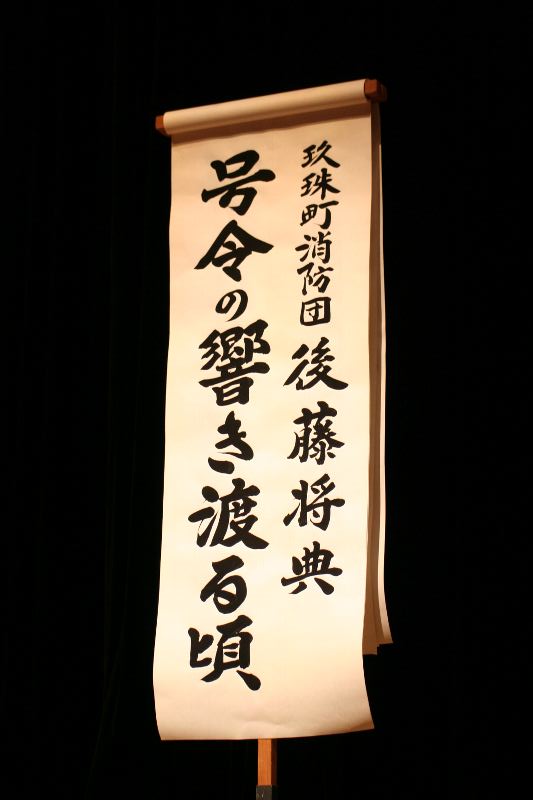 玖珠町消防団 後藤将典
号令の響き渡る頃